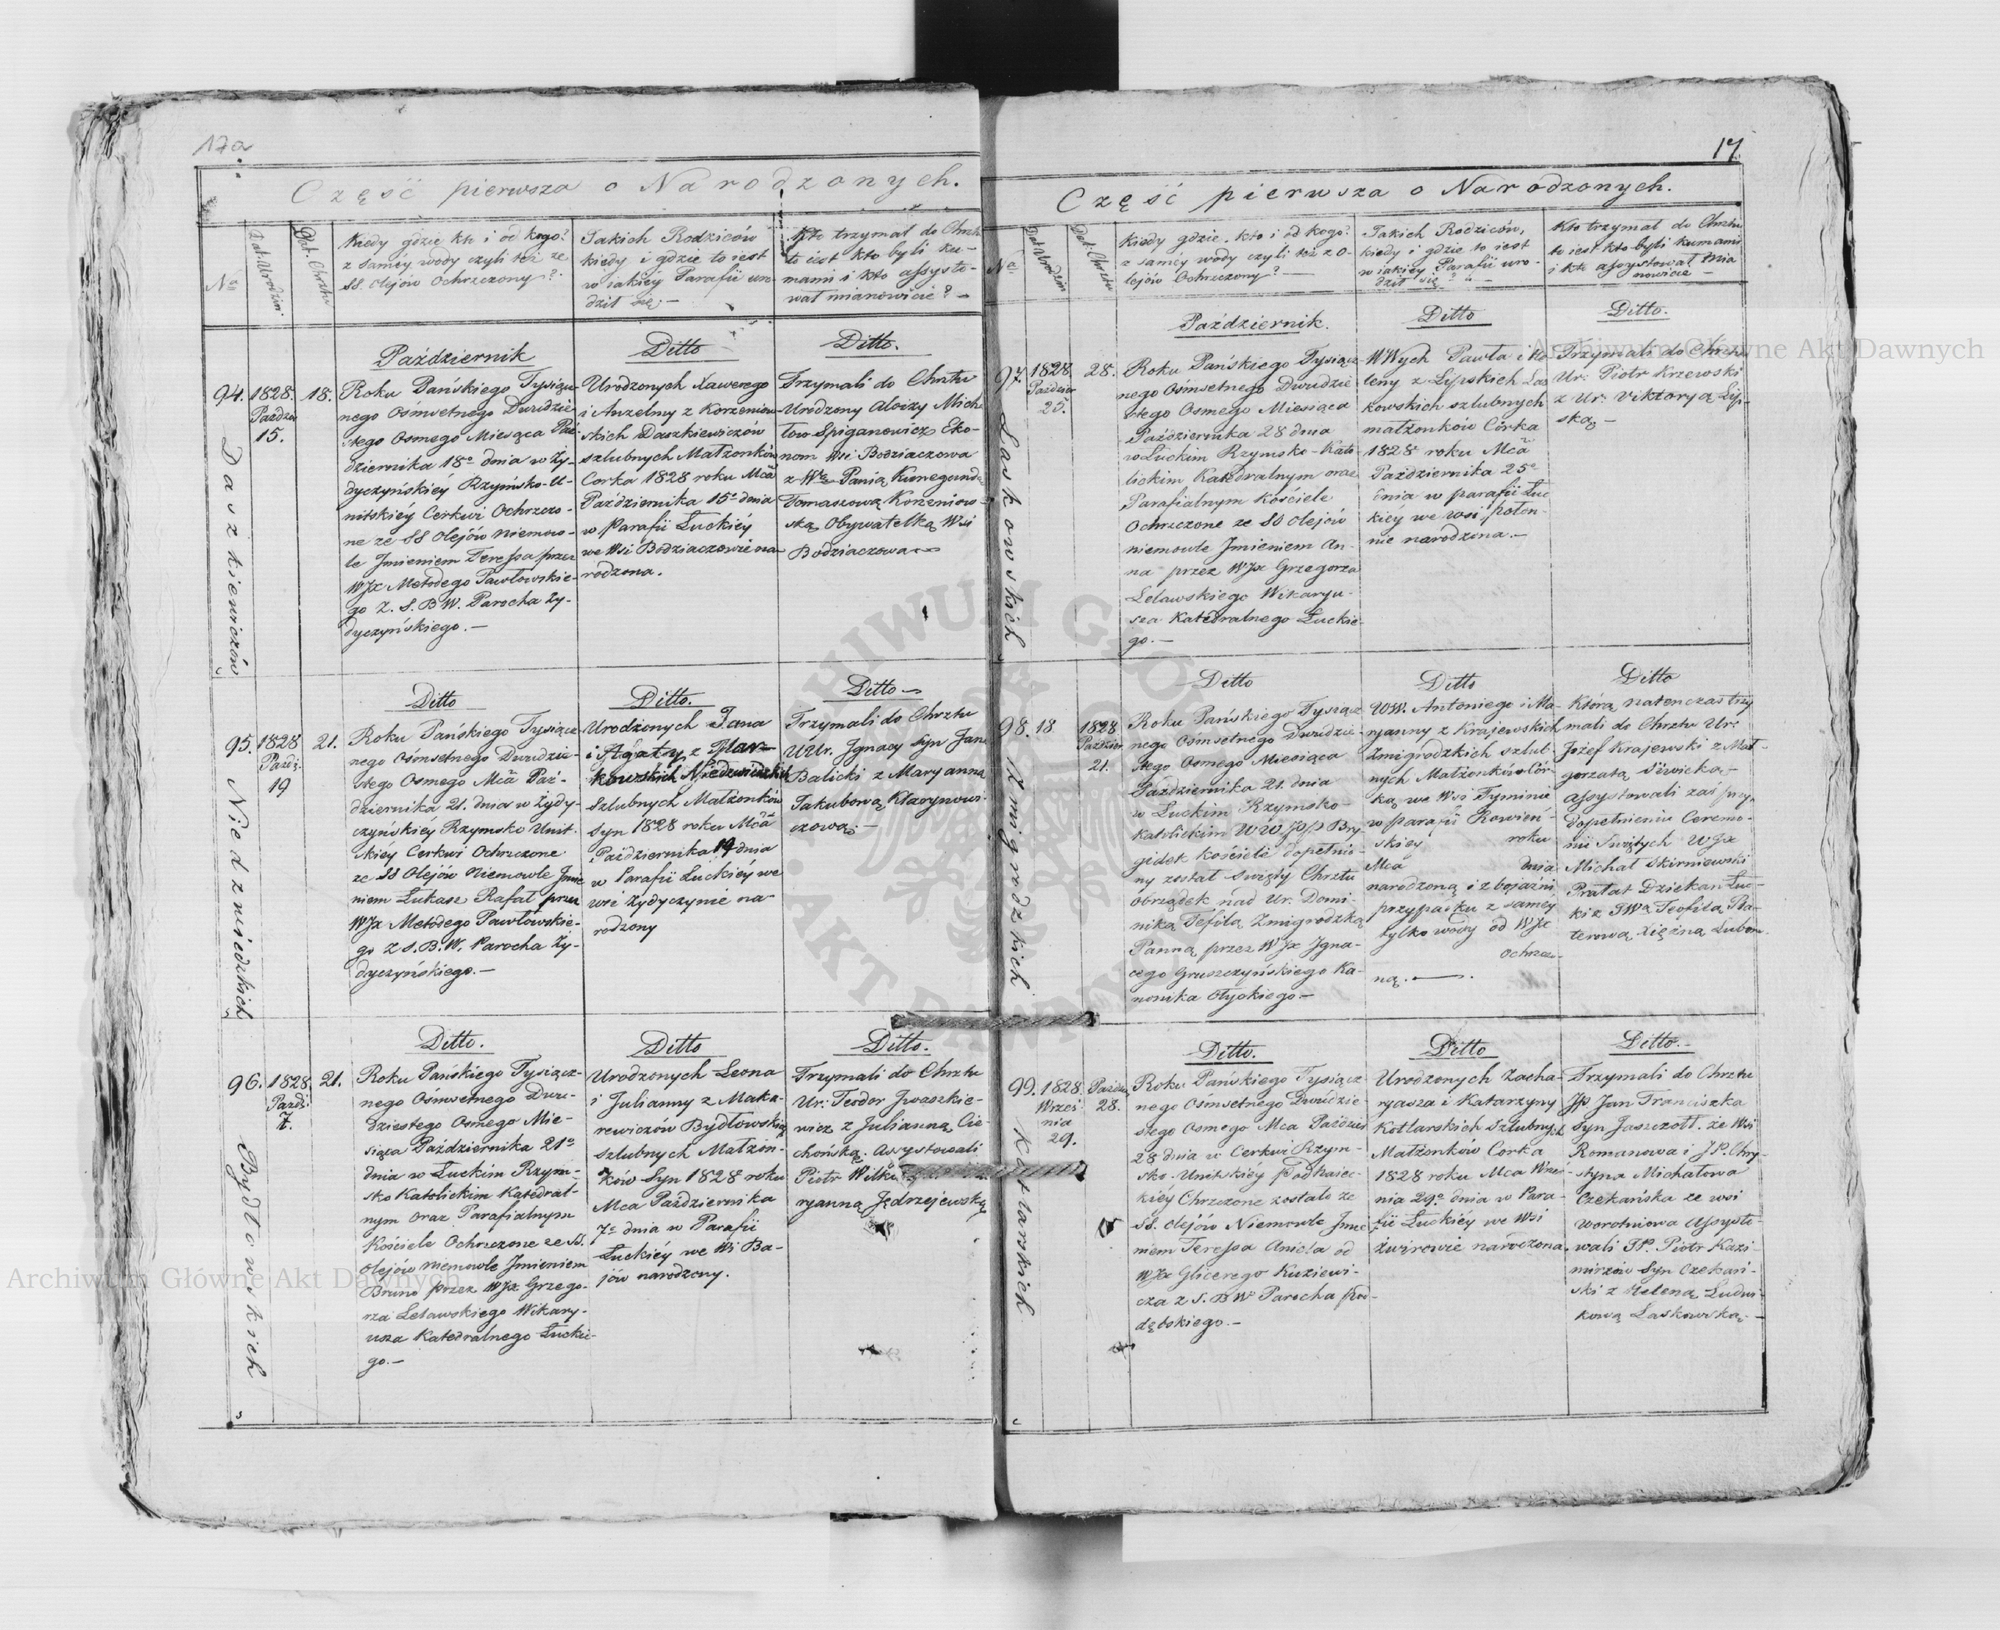 17a
Część pierwsza o Narodzonych.
No
Dat: Urodzin.
Dat: Chrztu
Kiedy gdzie kto i od kogo?
z saméy wody czyli też ze
SS. Olejów Ochrzczony?
Jakich Rodziców
kiedy i gdzie to iest
w iakiéy Parafii uro-
dził się. —
Kto trzymał do Chrztu
to iest kto byli ku-
mami i kto assysto-
wał mianowicie? —
94.
Daszkiewiczów
1828.
Paździer
15.
18.
Październik
Roku Pańskiego Tysiącz-
nego Osmsetnego Dwudzie-
stego Osmego Miesiąca Paź-
dziernika 18o dnia w Ży-
dyczyńskiéy Rzymsko-U-
nitskiéy Cerkwi Ochrzczo-
ne ze SS Olejów niemow-
le Imieniem Teressa przez
WJx Metodego Pawłowskie-
go Z. S. B W. Parocha Ży-
dyczyńskiego. —
Ditto
Urodzonych Xawerego
i Anzelmy z Korzeniow-
skich Daszkiewiczów
szlubnych Małżonków
Corka 1828 roku Mca
Października 15o dnia
w Parafii Łuckiéy
we Wsi Bodziaczowie na-
rodzona.
Ditto.
Trzymali do Chrztu
Urodzony Aloizy Mich
łow Spiganowicz Eko-
nom Wsi Bodziaczowa
z Wą Panią Kunegundą
Tomaszową Korzeniow-
ską Obywatelką Wsi
Bodziaczowa
95.
Niedzwiedzkich
1828
Paźdz.
19
21.
Ditto
Roku Pańskiego Tysiącz-
nego Osmsetnego Dwudzie-
stego Osmego Mca Paź-
dziernika 21. dnia w Żydy-
czyńskiéy Rzymsko Unit-
skiéy Cerkwi Ochrzczone
ze SS Olejów Niemowle Jmie
niem Łukasz Rafał przez
WJx Metodego Pawłowskie-
go Z S. B. W. Parocha Ży-
dyczyńskiego. —
Ditto.
Urodzonych Jana
i Agaty z
Niedzwiedzkich
Szlubnych Małżonków
Syn 1828 roku Mca
Października 19 dnia
w Parafii Łuckiéy we
wsi Żydyczynie na-
rodzony
Ditto —
Trzymali do Chrztu
UUr. Jgnacy Syn Jana
Balicki z Maryanną
Jakubową
czową. —
96.
Bydłowskich
1828.
Paźdz:
7.
21.
Ditto.
Roku Pańskiego Tysiącz-
nego Osmsetnego Dwu-
dziestego Osmego Mie-
siąca Października 21o
dnia w Łuckim Rzym-
sko Katolickim Katedral-
nym oraz Parafialnym
Kościele Ochrzczone ze SS.
Olejów niemowle Jmieniem
Bruno przez WJx Grzego-
rza Lelawskiego Wikary-
usza Katedralnego Łuckie-
go. —
Ditto
Urodzonych Leona
i Julianny z Maka-
rewiczów Bydłowskich
szlubnych Małżon-
ków Syn 1828 roku
Mca Października
7o dnia w Parafii
Łuckiéy we Wsi Ba-
jów narodzony.
Ditto.
Trzymali do Chrztu
Ur: Teodor Jwaszkie-
wicz z Julianną Cie-
chońską. Assystowali
Piotr
ryanną Jędrzejewską
17.
Część pierwsza o Narodzonych.
No
Dat: Urodzin
Dat: Chrztu
Kiedy gdzie, kto i od kogo?
z saméy wody czyli też z O-
lejów Ochrzczony? —
Jakich Rodziców,
kiedy i gdzie to iest
w iakiéy Parafii uro-
dził się? —
Kto trzymał do Chrztu
to iest kto byli kumami
i kto assystował mia
nowicie —
97.
Laskowskich
1828
Paździer
25.
28.
Październik.
Roku Pańskiego Tysiącz
nego Osmsetnego Dwudzie
stego Osmego Miesiąca
Października 28 dnia
w Łuckim Rzymsko-Kato
lickim Katedralnym oraz
Parafialnym Kościele
Ochrzczone ze SS Olejów
niemowle Jmieniem An-
na przez WJx Grzegorza
Lelawskiego Wikaryu-
sza Katedralnego Łuckie-
go. —
Ditto
WWych Pawła i He
leny z Lipskich Las
kowskich szlubnych
małżonków Córka
1828 roku Mca
Października 25o
dnia w parafii Łuc
kiéy we wsi połon-
nie narodzona. —
Ditto.
Trzymali do Chrztu
Ur: Piotr Krzewski
z Ur: Viktoryą Lip-
ską —
98.
Żmigrodzkich
18
1828
Paździer
21.
Ditto
Roku Pańskiego Tysiącz
nego Osmsetnego Dwudzie-
stego Osmego Miesiąca
Października 21. dnia
w Łuckim Rzymsko-
Katolickim WW PP Bry-
gidek kościele dopełnio-
ny został Swięty Chrztu
obrządek nad Ur. Domi-
niką Tefilą Żmigrodzką
Panną przez WJx Jgna-
cego Gruszczyńskiego Ka-
nonika Ołyckiego —
Ditto
WW. Antoniego i Ma-
ryanny z Krajewskich
Żmigrodzkich szlub-
nych Małżonków Cór-
ką we Wsi Tyminie
w parafii Rowień-
skiey roku
Mca dnia
narodzoną i z bojaźni
przypadku z saméy
tylko wody od WJx
ochrzczo-
ną. —
Ditto
Którą natenczas trzy
mali do Chrztu Ur:
Jozef Krajewski z Mał-
gorzatą Siwicką —
Assystowali zaś przy
dopełnieniu Ceremo-
nii Swiętych WJx
Michał Skirniewski
Prałat Dziekan Łuc-
ki z JWą Teofilą Pla-
terową Xiężną Lubom.
99.
Kotlarskich
1828.
Wrześ
nia
29.
Paździer
28.
Ditto.
Roku Pańskiego Tysiącz
nego Osmsetnego Dwudzie-
stego Osmego Mca Paździer
28 dnia w Cerkwi Rzym-
sko-Unitskiéy Podhaiec-
kiéy Chrzczone zostało ze
SS. Olejów Niemowle Jmie
niem Teressa Aniela od
WJx Glicerego Kuziewi-
cza Z S. B W. Parocha pod-
dębskiego. —
Ditto
Urodzonych Zacha-
ryasza i Katarzyny
Kotlarskich Szlubnych
Małżonków Córka
1828 roku Mca Wrześ-
nia 29o dnia w Para-
fii Łuckiéy we Wsi
Żwirowie narodzona.
Ditto. —
Trzymali do Chrztu
JP Jan Franciszka
Syn Jaszczołt. ze Wsi
Romanowa i JP. Chry-
styna Michałowa
Czekańska ze wsi
Worotniowa Assysto-
wali JP. Piotr Kazi-
mirzów Syn Czekań-
ski z Heleną Ludwi-
kową Laskowską —
Archiwum Główne Akt Dawnych
Archiwum Główne Akt Dawnych
ARCHIWUM GŁÓWNE AKT DAWNYCH